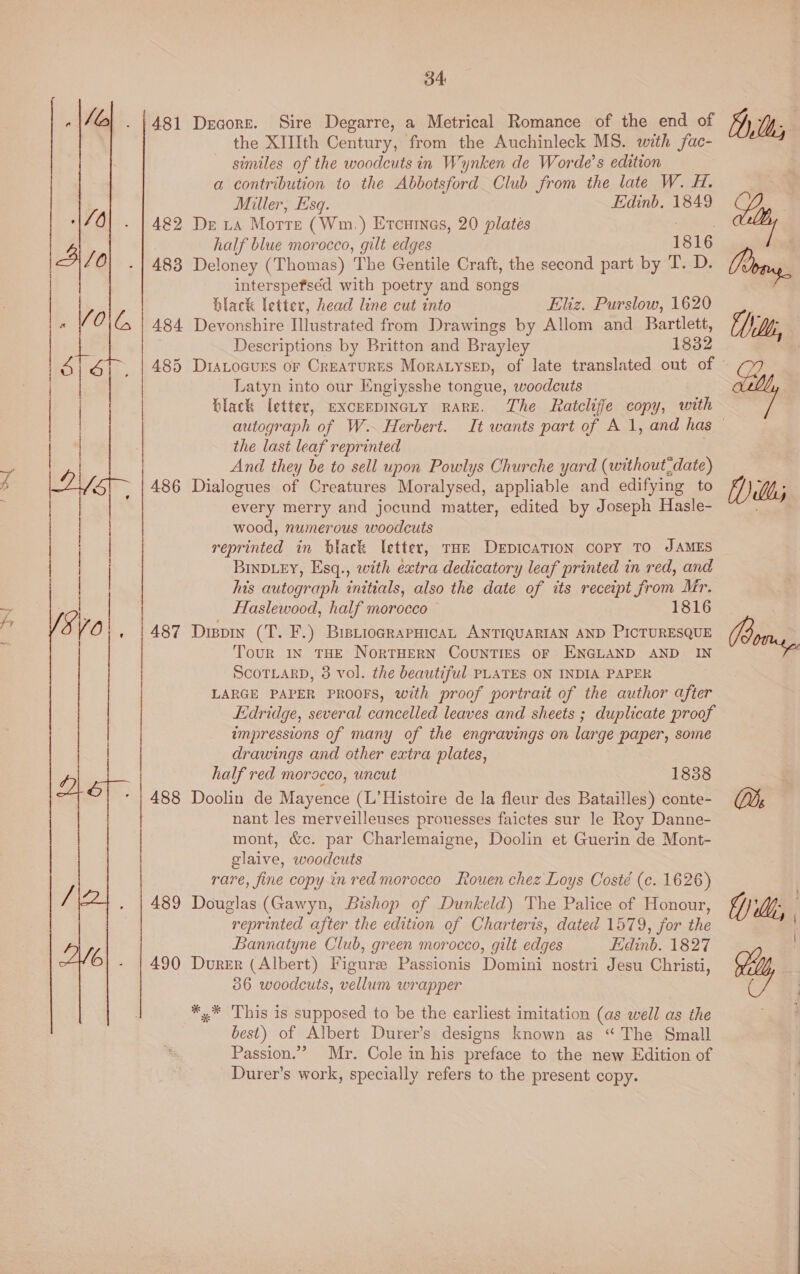 34
" 16 . 481 Degore. Sire Degarre, a Metrical Romance of the end of Willis
the XIIIth Century, from the Auchinleck MS. with fac-
similes of the woodcuts in Wynken de Worde's edition
a contribution to the Abbotsford Club from the late W. H.
Miller, Esq. Edinb. 1849
" 10 . 482 De la Motte (Wm.) Etchings, 20 plates
half blue morocco, gilt edges 1816
10 . 483 Deloney (Thomas) The Gentile Craft, the second part by T. D.
interspersed with poetry and songs
black letter, head line cut into Eliz. Purslow, 1620
" 10 6 484 Devonshire Illustrated from Drawings by Allom and Bartlett, Willis,
Descriptions by Britton and Brayley 1832
485 Dialogues of Creatures Moralysed, of late translated out of
Latyn into our Engiysshe tongue, woodcuts
black letter, exceedingly rare. The Ratcliffe copy, with
autograph of W. Herbert. It wants part of A 1, and has
the last leaf reprinted
And they be to sell upon Powlys Churche yard (without date)
486 Dialogues of Creatures Moralysed, appliable and edifying to Willis
every merry and jocund matter, edited by Joseph Hasle-
wood, numerous woodcuts
reprinted in black letter, the Dedication copy to James
Bindley, Esq., with extra dedicatory leaf printed in red, and
his autograph initials, also the date of its receipt from Mr.
Haslewood, half morocco 1816
487 Dibdin (T. F.) Bibliographical Antiquarian and Picturesque
Tour in the Northern Counties of England and in
Scotlard, 3 vol. the beautiful plates on india paper
large paper proofs, with proof portrait of the author after
Edridge, several cancelled leaves and sheets ; duplicate proof
impressions of many of the engravings on large paper, some
drawings and other extra plates,
half red morocco, uncut 1838
488 Doolin de Mayence (L'Histoire de la fleur des Batailles) conte-
nant les merveilleuses prouesses faictes sur le Roy Danne-
mont, &c. par Charlemaigne, Doolin et Guerin de Mont-
glaive, woodcuts
rare, fine copy in red morocco Rouen chez Loys Costé (c. 1626)
489 Douglas (Gawyn, Bishop of Dunkeld) The Palice of Honour, Willis,
reprinted after the edition of Charteris, dated 1579, for the
Bannatyne Club, green morocco, gilt edges Edinb. 1827
490 Durer (Albert) Figuræ Passionis Domini nostri Jesu Christi,
36 woodcuts, vellum wrapper
*** This is supposed to be the earliest imitation (as well as the
best) of Albert Durer's designs known as “ The Small
Passion.” Mr. Cole in his preface to the new Edition of
Durer's work, specially refers to the present copy.